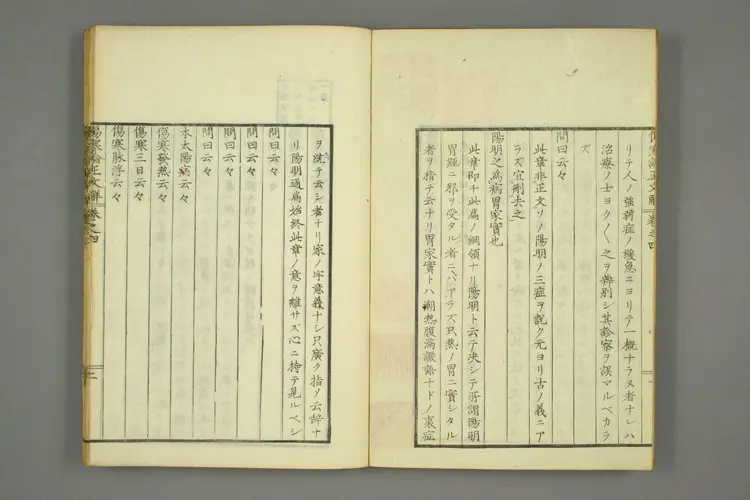 傷寒論正文解 卷之四
リテ人ノ強弱症ノ緩急ニヨリテ一概ナラヌ者ナレハ
治療ノ士ヨク〳〵之ヲ辨別シ其診察ヲ誤マルベカラ
ズ
問曰云々
此章非正文ソノ陽明ノ三症ヲ説ク元ヨリ古ノ義ニア
ラズ宜刪去之
陽明之為病胃家實也
此章即チ此篇ノ綱領ナリ陽明ト云テ決シテ所謂陽明
胃經ニ邪ヲ受タル者ニハアラズ只熱ノ胃ニ實シタル
者ヲ指テ云ナリ胃家實トハ潮熱腹滿譫語ナドノ裏症
ヲ統テ云シ者ナリ家ノ字意義ナシ只廣ク指ソ云辞ナ
リ陽明通篇始終此章ノ意ヲ離サズ心ニ持テ見ルベシ
問曰云々
問曰云々
問曰云々
問曰云々
本太陽病云々
傷寒發熱云々
傷寒三日云々
傷寒脉浮云々
傷寒論正文解 卷之四